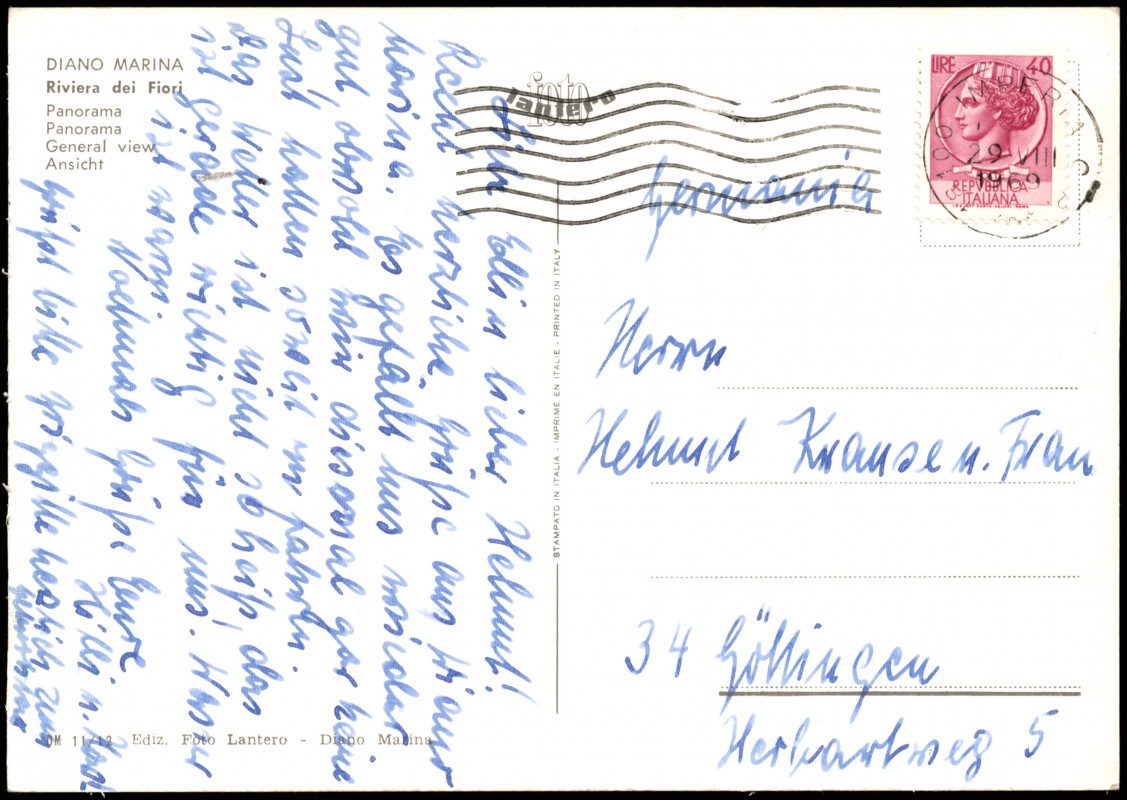 DIANO MARINA
Riviera dei Fiori
Panorama
Panorama
General view
Ansicht
foto
lantero
LIRE 40
REPVBBLICA
ITALIANA
IMPERIA
29 VIII
1969
Germania
Herrn
Helmut Krause u. Frau
34 Göttingen
Herbartweg 5
lieber Helmut!
Recht herzliche Grüße aus Diano
Marina. Es gefällt uns wieder
gut obwohl wir diesmal gar keine
Lust hatten soweit zu fahren.
Das Wetter ist nicht so heiß, das
ist gerade richtig für uns. Wasser
ist warm.
Nochmals Grüße Eure
Hilli u.
Grüßt bitte herzlich
STAMPATO IN ITALIA - IMPRIME EN ITALIE - PRINTED IN ITALY
DM 11/12 Ediz. Foto Lantero - Diano Marina